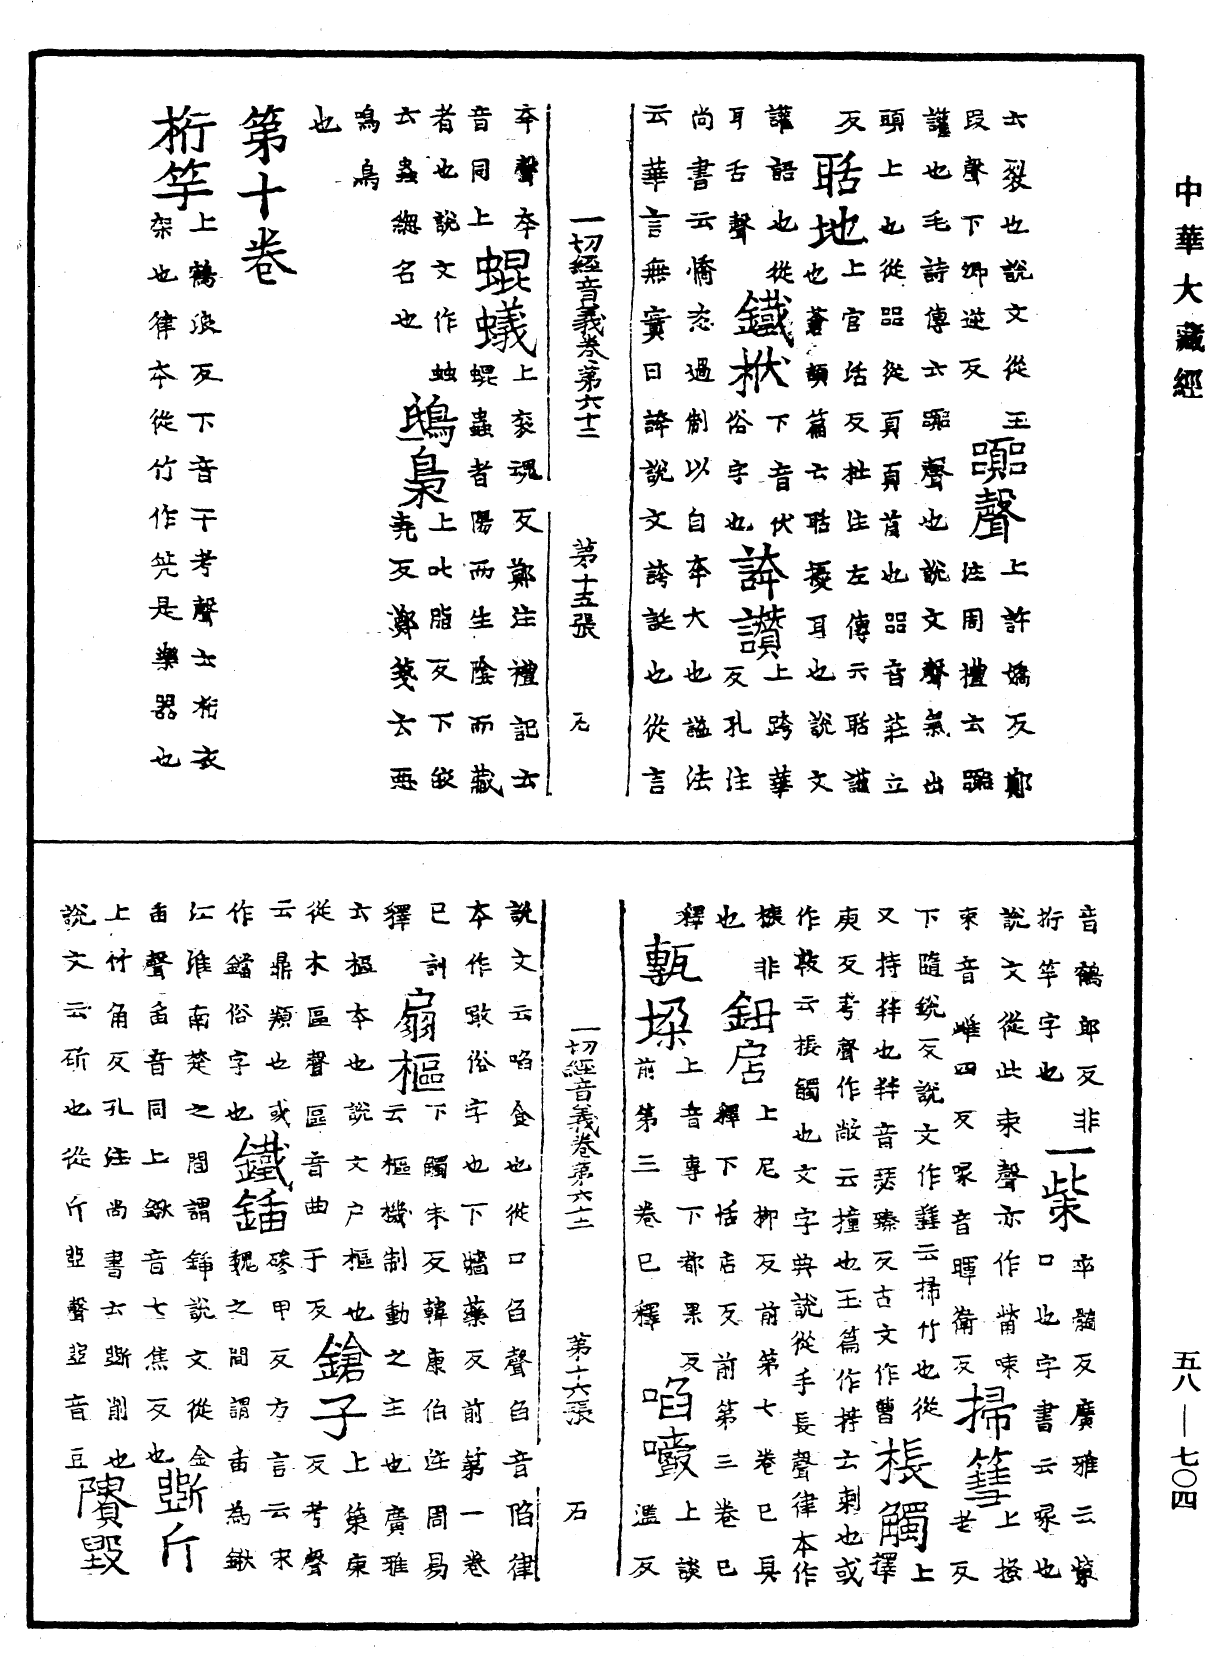 中華大藏經
士裂也說文從王
段聲下卿逆反
嚻聲
上許嬌反鄭注周禮云嚻
讙也毛詩傳云嚻聲也說文聲氣出
頭上也從㗊從頁頁首也㗊音莊立
反
聒地
上官活反杜注左傳云聒讙
也蒼頡篇云聒擾耳也說文
讙語也從耳舌聲
鐵杴
下音伏俗字也
誇讚
上跨華反孔注
尚書云憍恣過制以自夲大也謚法
云華言無實曰誇說文誇誕也從言
一切經音義卷第六十二 第十五張 石
夲聲夲音同上
蜫蟻
上衮魂反鄭注禮記云
蜫蟲者陽而生陰而藏
者也說文作䖵
云蟲緫名也
鴟梟
上叱脂反下皎
堯反鄭箋云惡
鳴鳥也
第十卷
桁竿
上鶴浪反下音干考聲云桁衣
架也律本從竹作笐是樂器也
音鶴郎反非
桁竿字也
一㭰
卒髓反廣雅云㭰
口也字書云㖨也
說文從此朿聲亦作觜㖨
朿音雌四反㖨音暉衛反
掃篲
上掻老反
下隨銳反說文作彗云掃竹也從
又持𤯓也𤯓音瑟臻反古文作𥱵
棖觸
上擇
庚反考聲作敞云撞也玉篇作㨃云刺也或
作敦云棖觸也文字典說從手長聲律本作
棖非也
鈕扂
上尼柳反前第七卷已具
釋下恬店反前第三卷已
釋
甎垜
上音專下都果反
前第三卷已釋
啗嚼
上談濫反
說文云啗食也從口臽聲臽音陷律
本作噉俗字也下牆藥反前第一卷
已訓釋
扇樞
下觸朱反韓康伯注周易
云樞機制動之主也廣雅
云樞本也說文戶樞也
從木區聲區音曲于反
鎗子
上策東反考聲
云鼎類也或磣甲反方言云宋
作鐺俗字也
鐵鍤
魏之間謂臿為鍬
江淮南楚之間謂鍤說文從金
臿聲臿音同上鍬音七焦反也
斲斤
上竹角反孔注尚書云斲削也
說文云斫也從斤㔁聲㔁音豆
隤毀
一切經音義卷第六十二 第十六張 石
五八—七〇四